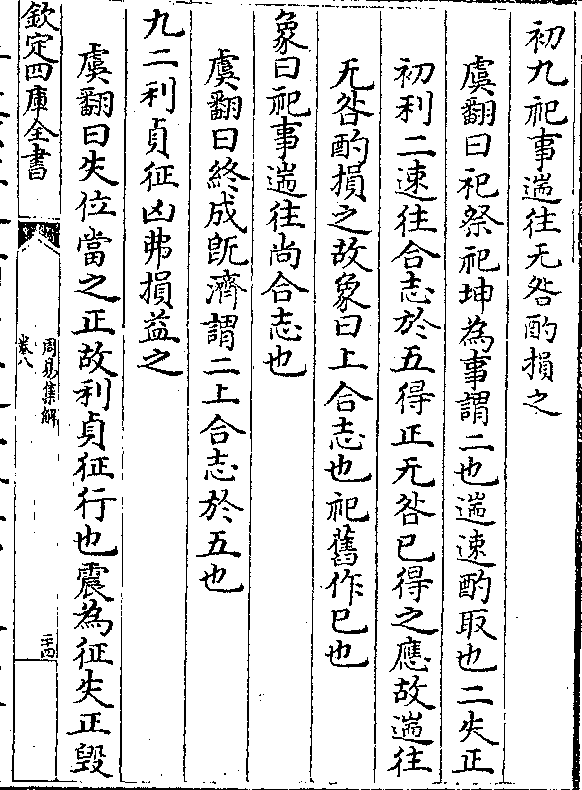 初九祀事遄往无咎酌損之
虞翻曰祀祭祀坤為事謂二也遄速酌取也二失正
初利二速往合志於五得正无咎已得之應故遄往
无咎酌損之故象曰上合志也祀舊作巳也
象曰祀事遄往尚合志也
虞翻曰終成旣濟謂二上合志於五也
九二利貞征凶弗損益之
虞翻曰失位當之正故利貞征行也震為征失正毀
欽定四庫全書
周易集解
卷八
二十四